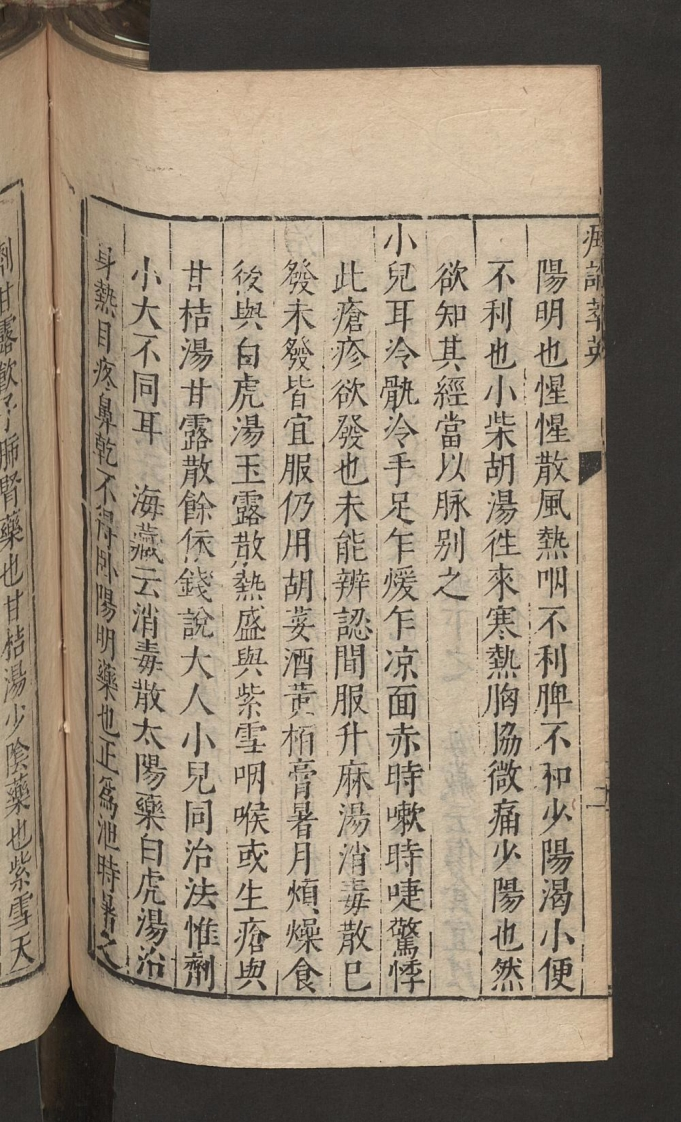 癍論萃英
陽明也惺惺散風熱咽不利脾不和少陽渴小便
不利也小柴胡湯徃來寒熱胸協微痛少陽也然
欲知其經當以脉别之
小兒耳冷骩冷手足乍煖乍凉面赤時嗽時嚏驚悸
此瘡疹欲發也未能辨認間服升麻湯消毒散已
發未發皆宜服仍用胡荽酒黄栢膏暑月煩燥食
後與白虎湯玉露散熱盛與紫雪咽喉或生瘡與
甘桔湯甘露散餘依錢說大人小兒同治法惟劑
小大不同耳 海藏云消毒散太陽藥白虎湯治
身熱目疼鼻乾不得卧陽明藥也正爲泄時暑之
劑甘露飲子肺腎藥也甘桔湯少陰藥也紫雪天